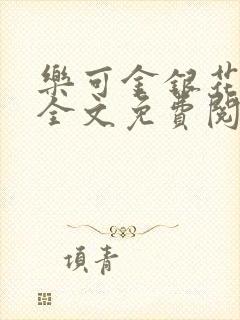 樂可金銀花
全文免費閱
項青